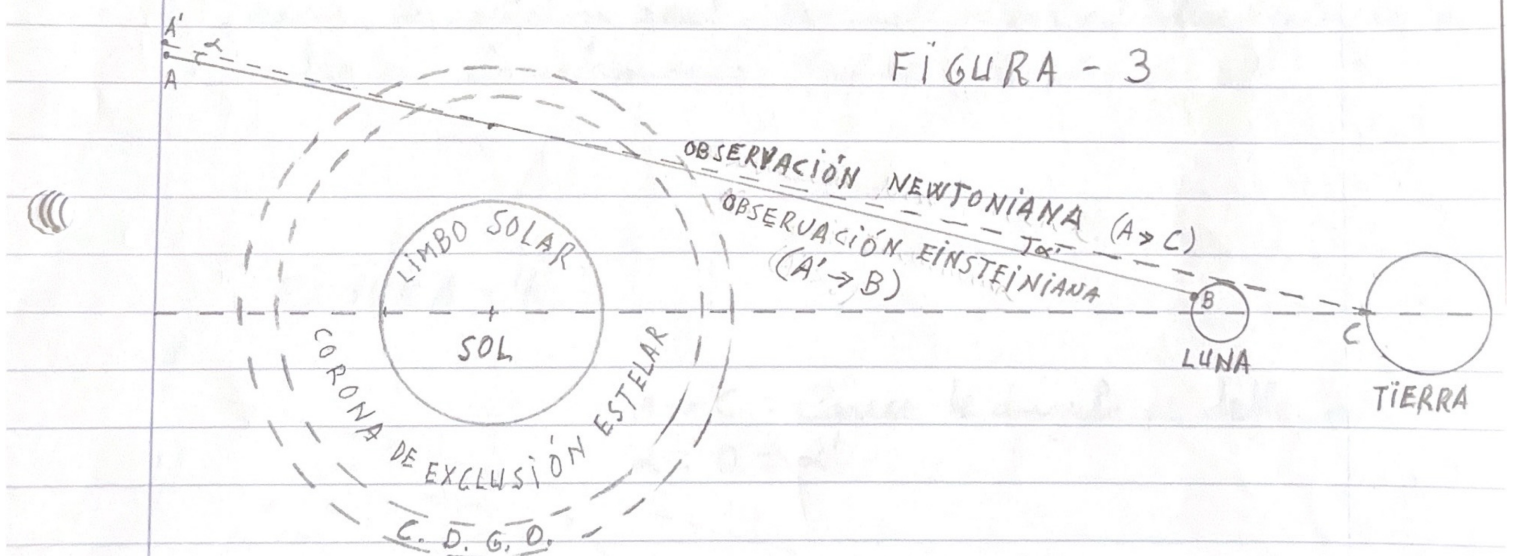 FIGURA - 3
A'
α
A
OBSERVACIÓN NEWTONIANA (A→C)
OBSERVACIÓN EINSTEINIANA
(A'→B)
α'
LIMBO SOLAR
SOL
CORONA DE EXCLUSIÓN ESTELAR
C. D. G. O.
B
LUNA
C
TIERRA